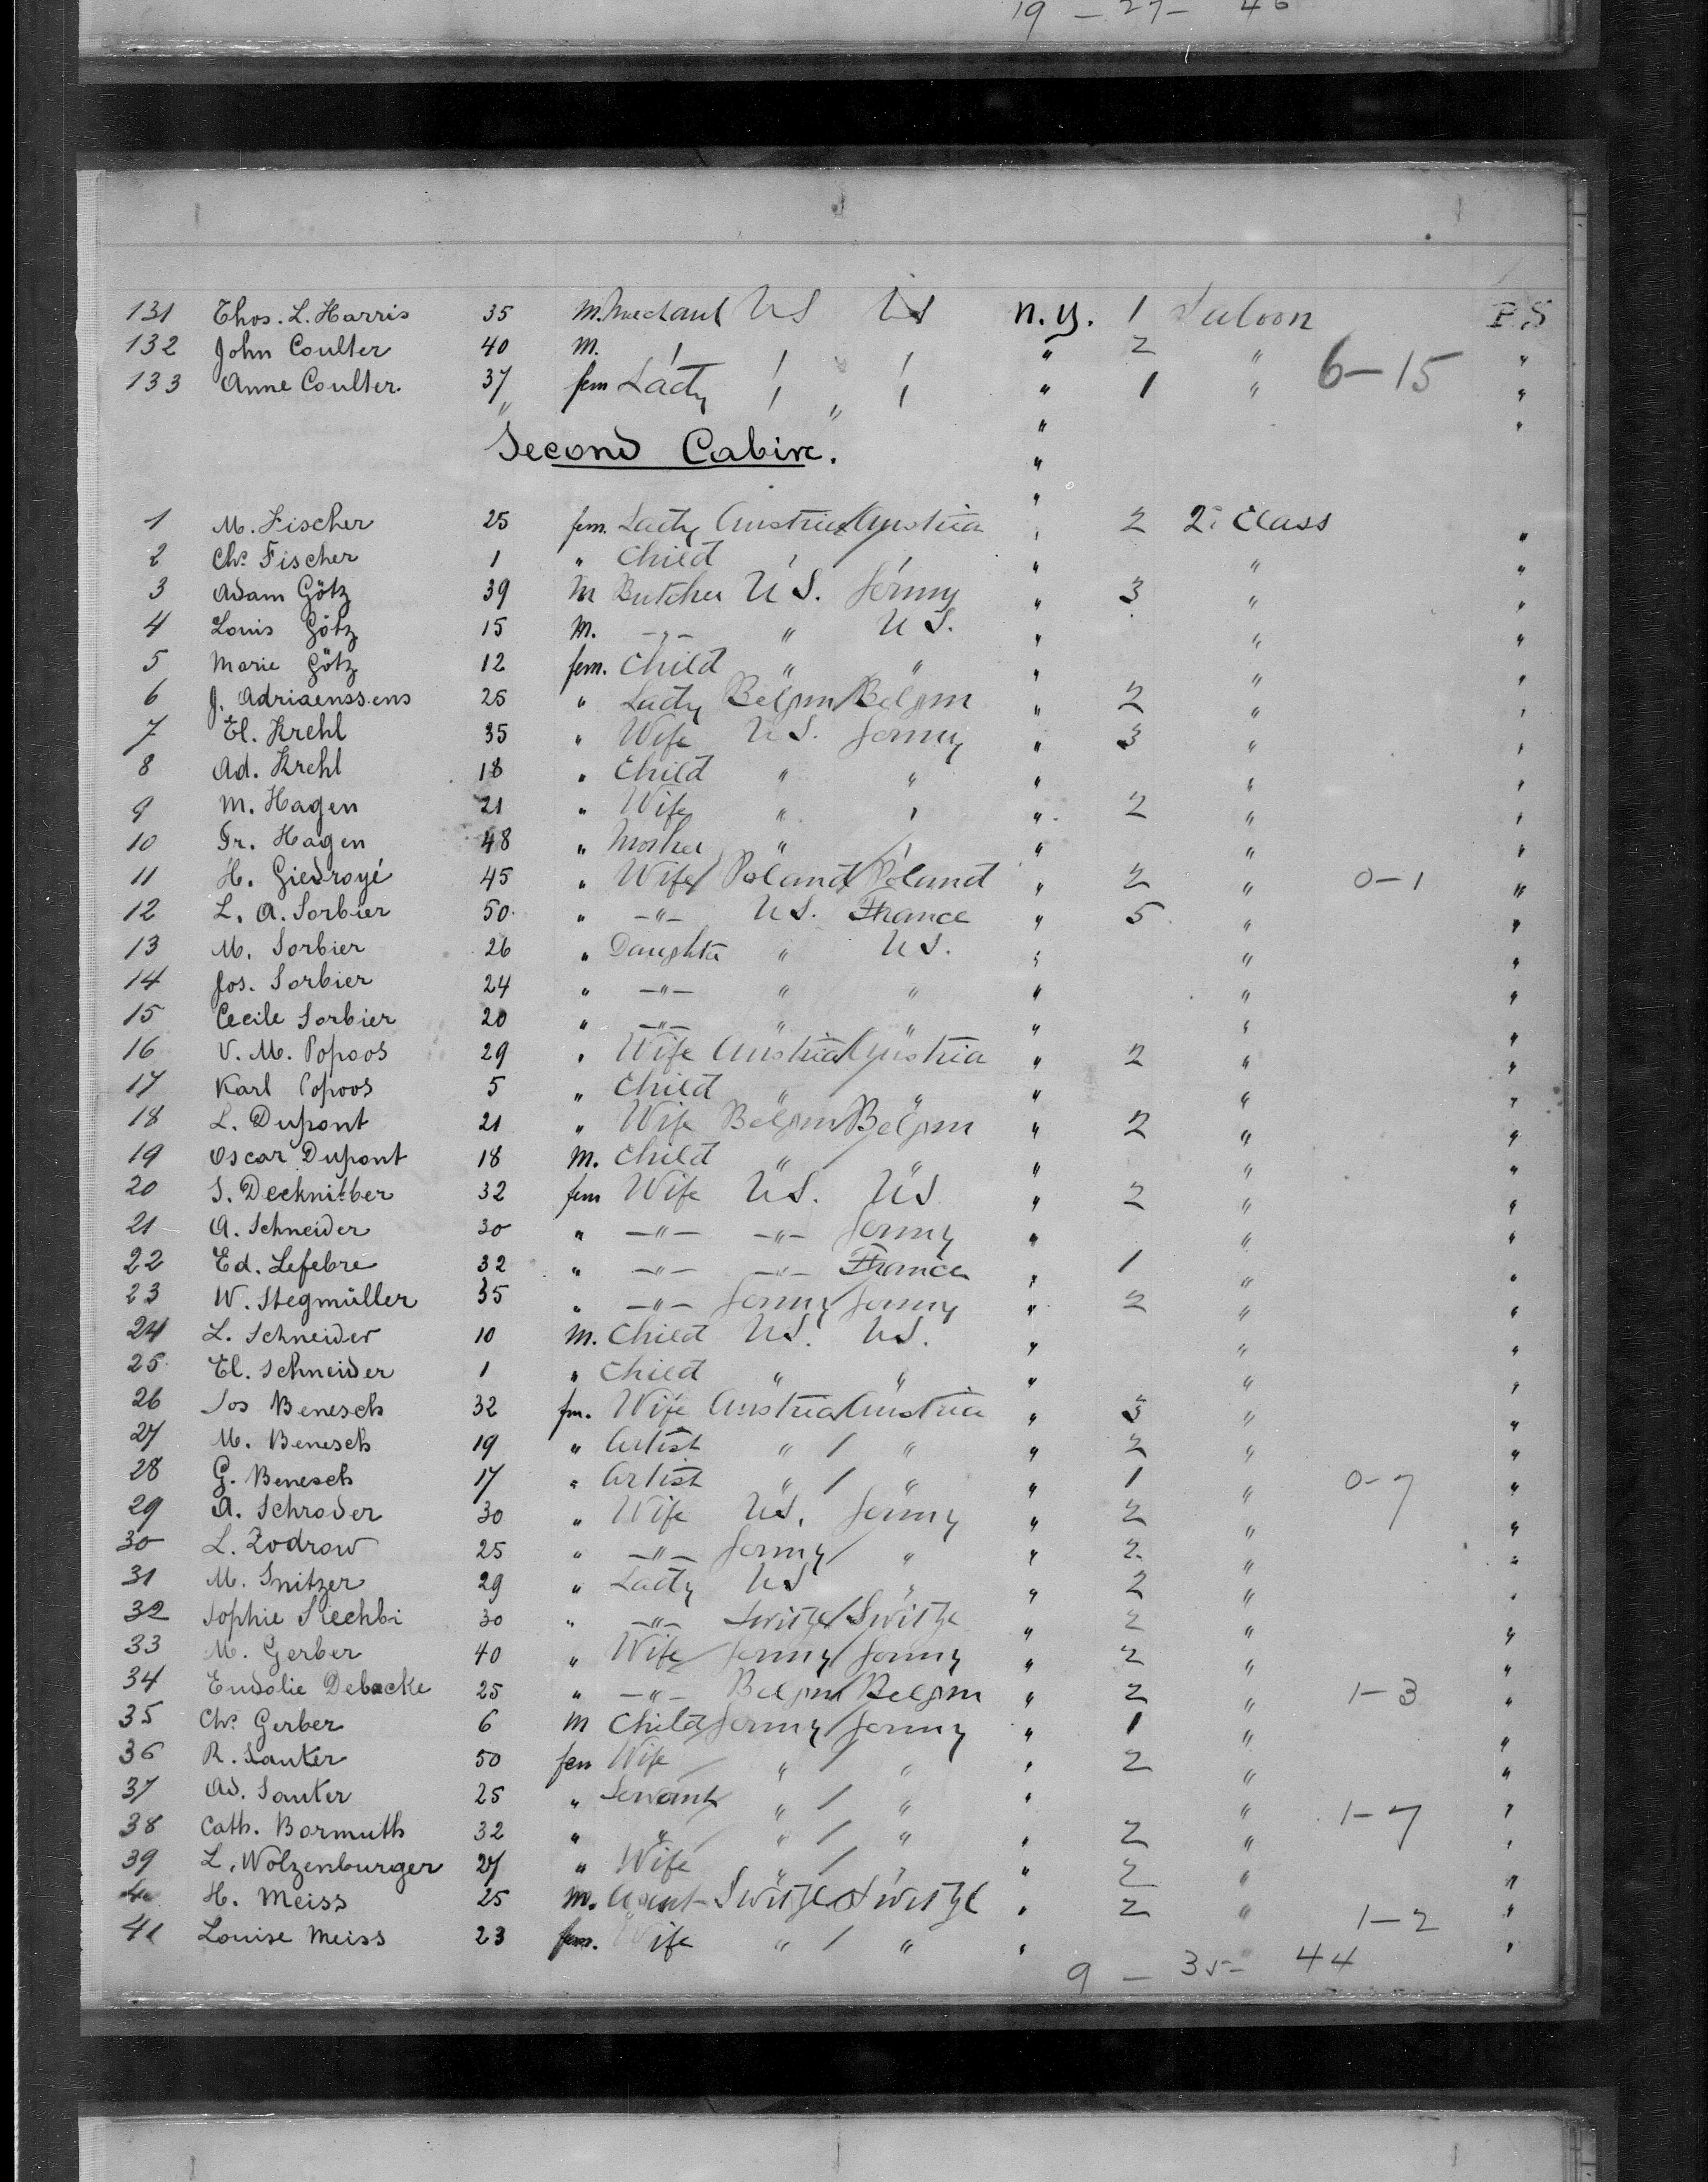 19 - 27 - 46
131 Thos. L. Harris 35 m. Merchant US US N.Y. 1 Saloon P.S
132 John Coulter 40 m. " " " " 2 " "
133 Anne Coulter 37 fem Lady " " " 1 " 6-15 "
Second Cabin.
1 M. Fischer 25 fem. Lady Austria/Austria " 2 2d Class "
2 Chs Fischer 1 " Child " " " " "
3 Adam Götz 39 m Butcher U S. Germy " 3 " "
4 Louis Götz 15 m. -"- " U S. " " "
5 Marie Götz 12 fem. Child " " " " "
6 J. Adriaenssens 25 " Lady Belgm/Belgm " 2 " "
7 El. Krehl 35 " Wife U S. Germy " 3 " "
8 Ad. Krehl 18 " Child " " " " "
9 M. Hagen 21 " Wife " " " 2 " "
10 Fr. Hagen 48 " Mother " " " " "
11 H. Giedroyé 45 " Wife/Poland/Poland " 2 " 0-1 "
12 L. A. Sorbier 50 " -"- U S. France " 5 " "
13 M. Sorbier 26 " Daughter " U S. " " "
14 Jos. Sorbier 24 " -"- " " " " "
15 Cecile Sorbier 20 " -"- " " " " "
16 V. M. Popoos 29 " Wife Austria/Austria " 2 " "
17 Karl Popoos 5 " Child " " " " "
18 L. Dupont 21 " Wife Belgm/Belgm " 2 " "
19 Oscar Dupont 18 m. Child " " " " "
20 S. Decknitber 32 fem Wife U S. U S " 2 " "
21 A. Schneider 30 " -"- -"- Germy " " "
22 Ed. Lefebre 32 " -"- -"- France " 1 " "
23 W. Stegmüller 35 " -"- Germy/Germy " 2 " "
24 L. Schneider 10 m. Child U S. U S. " " "
25 El. Schneider 1 " Child " " " " "
26 Jos Benesch 32 fm. Wife Austria/Austria " 3 " "
27 M. Benesch 19 " Artist " / " " 2 " "
28 G. Benesch 17 " Artist " / " " 1 " 0-7 "
29 A. Schroder 30 " Wife U S. Germy " 2 " "
30 L. Zodrow 25 " -"- Germy/ " " 2 " "
31 M. Snitzer 29 " Lady U S " " 2 " "
32 Sophie 30 " -"- Switze/Switze " 2 " "
33 M. Gerber 40 " Wife Germy/Germy " 2 " "
34 Eudolie Debacke 25 " -"- Belgm/Belgm " 2 " 1-3 "
35 Chs Gerber 6 m Child Germy/Germy " 1 " "
36 R. Sauter 50 fem Wife " / " " 2 " "
37 Ad. Sauter 25 " Servant " / " " " 1-7 "
38 Cath. Bormuth 32 " " " / " " 2 " "
39 L. Wolzenburger 27 " Wife " / " " 2 " "
40 H. Meiss 25 m. Agent Switze Switze " 2 " 1-2 "
41 Louise Meiss 23 fem. Wife " / " " "
9 - 35 - 44